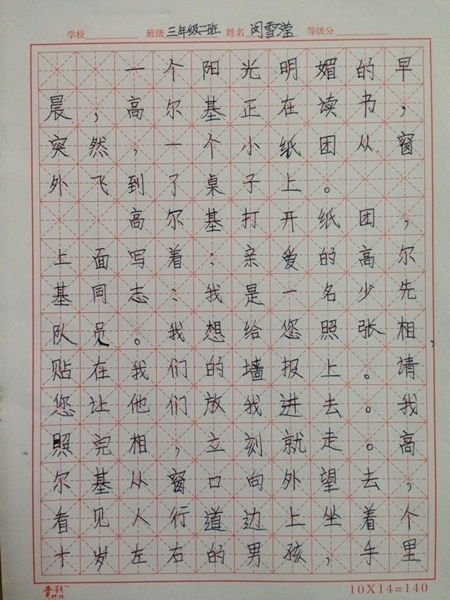 学校 班级 三年级一班 姓名 闵雪滢 等级分
一个阳光明媚的早
晨，高尔基正在读书，
突然，一个小纸团从窗
外飞到了桌子上。
高尔基打开纸团，
上面写着：亲爱的高尔
基同志：我是一名少先
队员。我想给您照张相
贴在我们的墙报上。请
您让他们放我进去。我
照完相，立刻就走。高
尔基从窗口向外望去，
看见人行道边上坐着个
十岁左右的男孩，手里
10X14=140